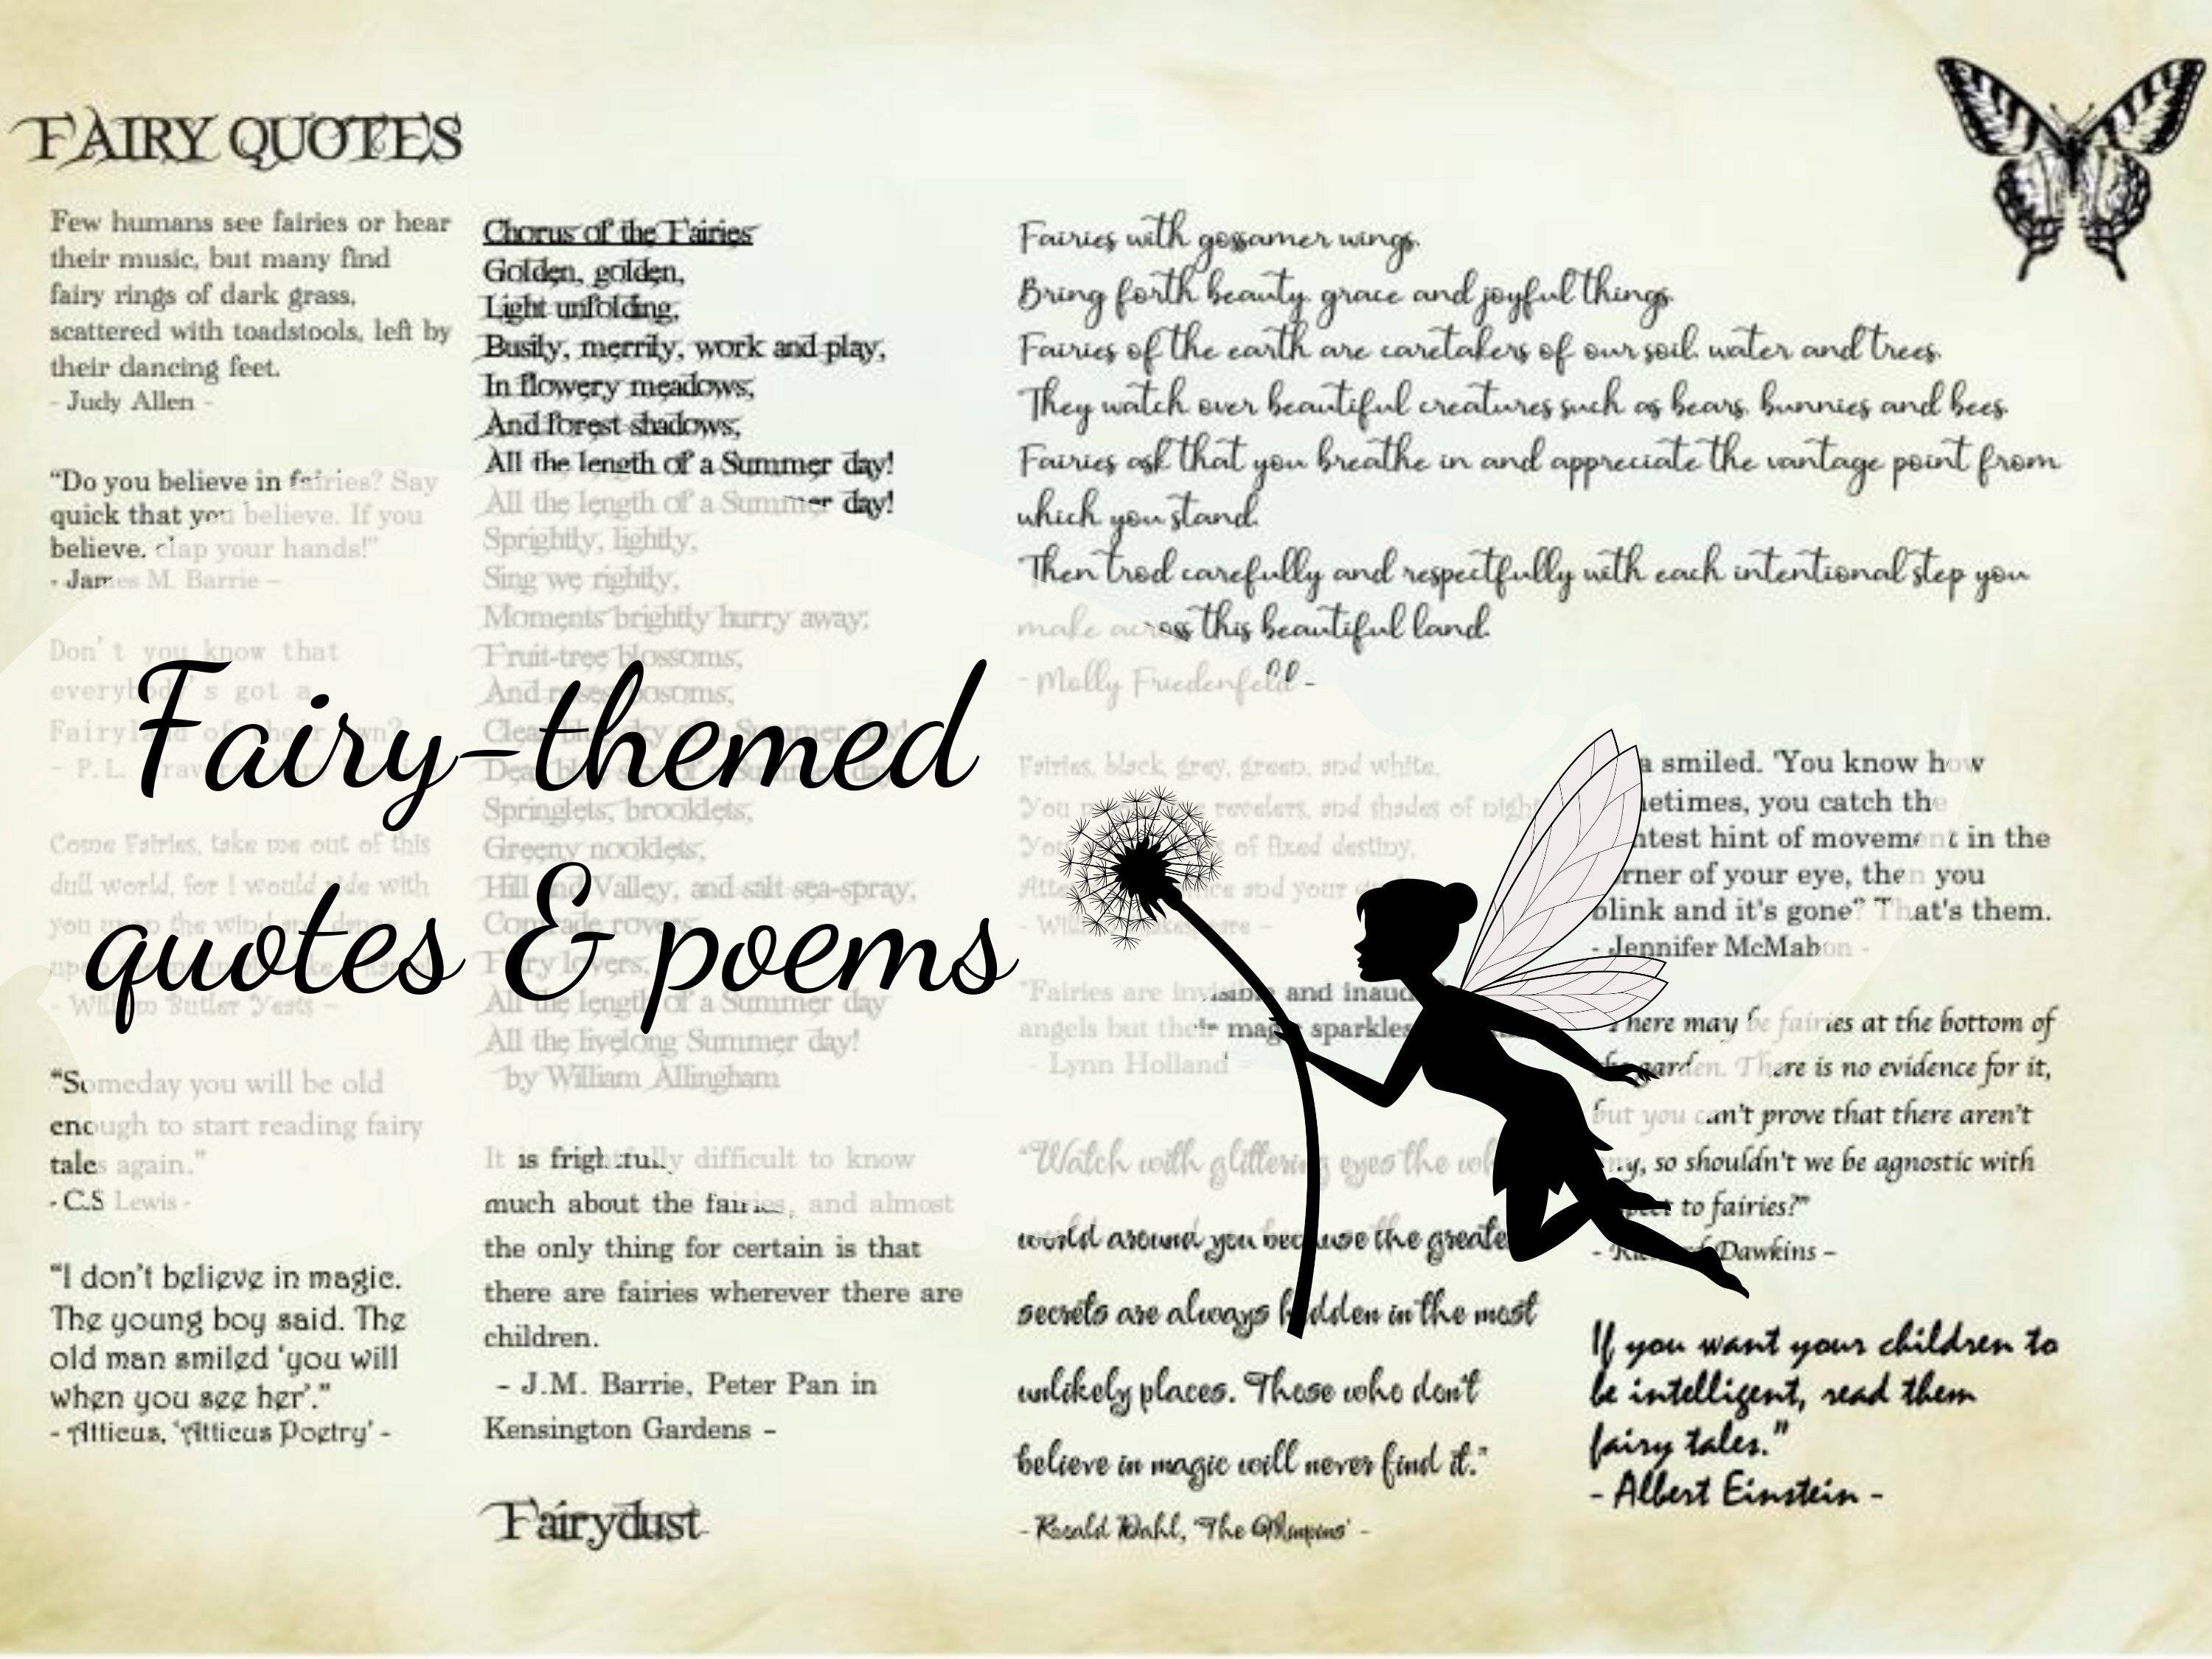 FAIRY QUOTES
Few humans see fairies or hear
their music, but many find
fairy rings of dark grass,
scattered with toadstools, left by
their dancing feet.
- Judy Allen -
“Do you believe in fairies? Say
quick that you believe. If you
believe. clap your hands!”
- James M. Barrie –
Don't you know that
everybody's got a
Fairyland of their own?
- P.L.
Come Fairies, take me out of this
dull world, for I would ride with
you upon the wind and dance
upon the
- William Butler Yeats –
“Someday you will be old
enough to start reading fairy
tales again.”
- C.S Lewis -
“I don't believe in magic.
The young boy said. The
old man smiled ‘you will
when you see her’.”
- Atticus, ‘Atticus Poetry’ -
Chorus of the Fairies
Golden, golden,
Light unfolding,
Busily, merrily, work and play,
In flowery meadows,
And forest shadows,
All the length of a Summer day!
All the length of a Summer day!
Sprightly, lightly,
Sing we rightly,
Moments brightly hurry away;
Fruit-tree blossoms,
And roses bosoms,
Clear blue sky of a Summer day!
Dear blue sky of a Summer day!
Springlets, brooklets,
Greeny nooklets,
Hill and Valley, and salt sea-spray,
Comrade rovers,
Fairy lovers,
All the length of a Summer day
All the livelong Summer day!
by William Allingham
It is frightfully difficult to know
much about the fairies, and almost
the only thing for certain is that
there are fairies wherever there are
children.
- J.M. Barrie, Peter Pan in
Kensington Gardens -
Fairydust
Fairies with gossamer wings,
Bring forth beauty, grace and joyful things.
Fairies of the earth are caretakers of our soil, water and trees,
They watch over beautiful creatures such as bears, bunnies and bees.
Fairies ask that you breathe in and appreciate the vantage point from
which you stand.
Then trod carefully and respectfully with each intentional step you
make across this beautiful land.
- Molly Friedenfeld -
Fairies, black, grey, green, and white,
You revelers, and shades of night
You of fixed destiny,
and your
- William Shakespeare –
“Fairies are invisible and
angels but their magic sparkles
- Lynn Holland –
“Watch with glittering eyes the
world around you because the
secrets are always hidden in the most
unlikely places. Those who don't
believe in magic will never find it.”
- Roald Dahl, ‘The Minpins’ -
smiled. ‘You know how
you catch the
hint of movement in the
corner of your eye, then you
blink and it's gone? That's them.
- Jennifer McMahon -
There may be fairies at the bottom of
the garden. There is no evidence for it,
but you can't prove that there aren't
any, so shouldn't we be agnostic with
to fairies?”
- Richard Dawkins –
If you want your children to
be intelligent, read them
fairy tales.”
- Albert Einstein -
Fairy-themed
quotes & poems